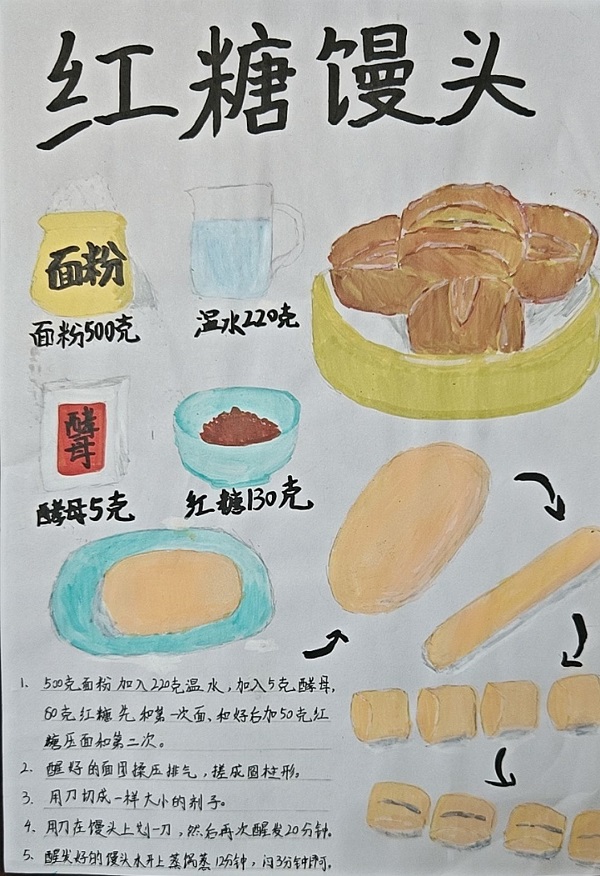 红糖馒头
面粉
面粉500克
温水220克
酵母
酵母5克
红糖130克
1. 500克面粉加入220克温水,加入5克酵母,
80克红糖先和第一次面、和好后加50克红
糖压面和第二次。
2. 醒好的面团揉压排气,搓成圆柱形。
3. 用刀切成一样大小的剂子。
4. 用刀在馒头上划一刀,然后再次醒发20分钟。
5. 醒发好的馒头水开上蒸锅蒸12分钟,闷3分钟即可。